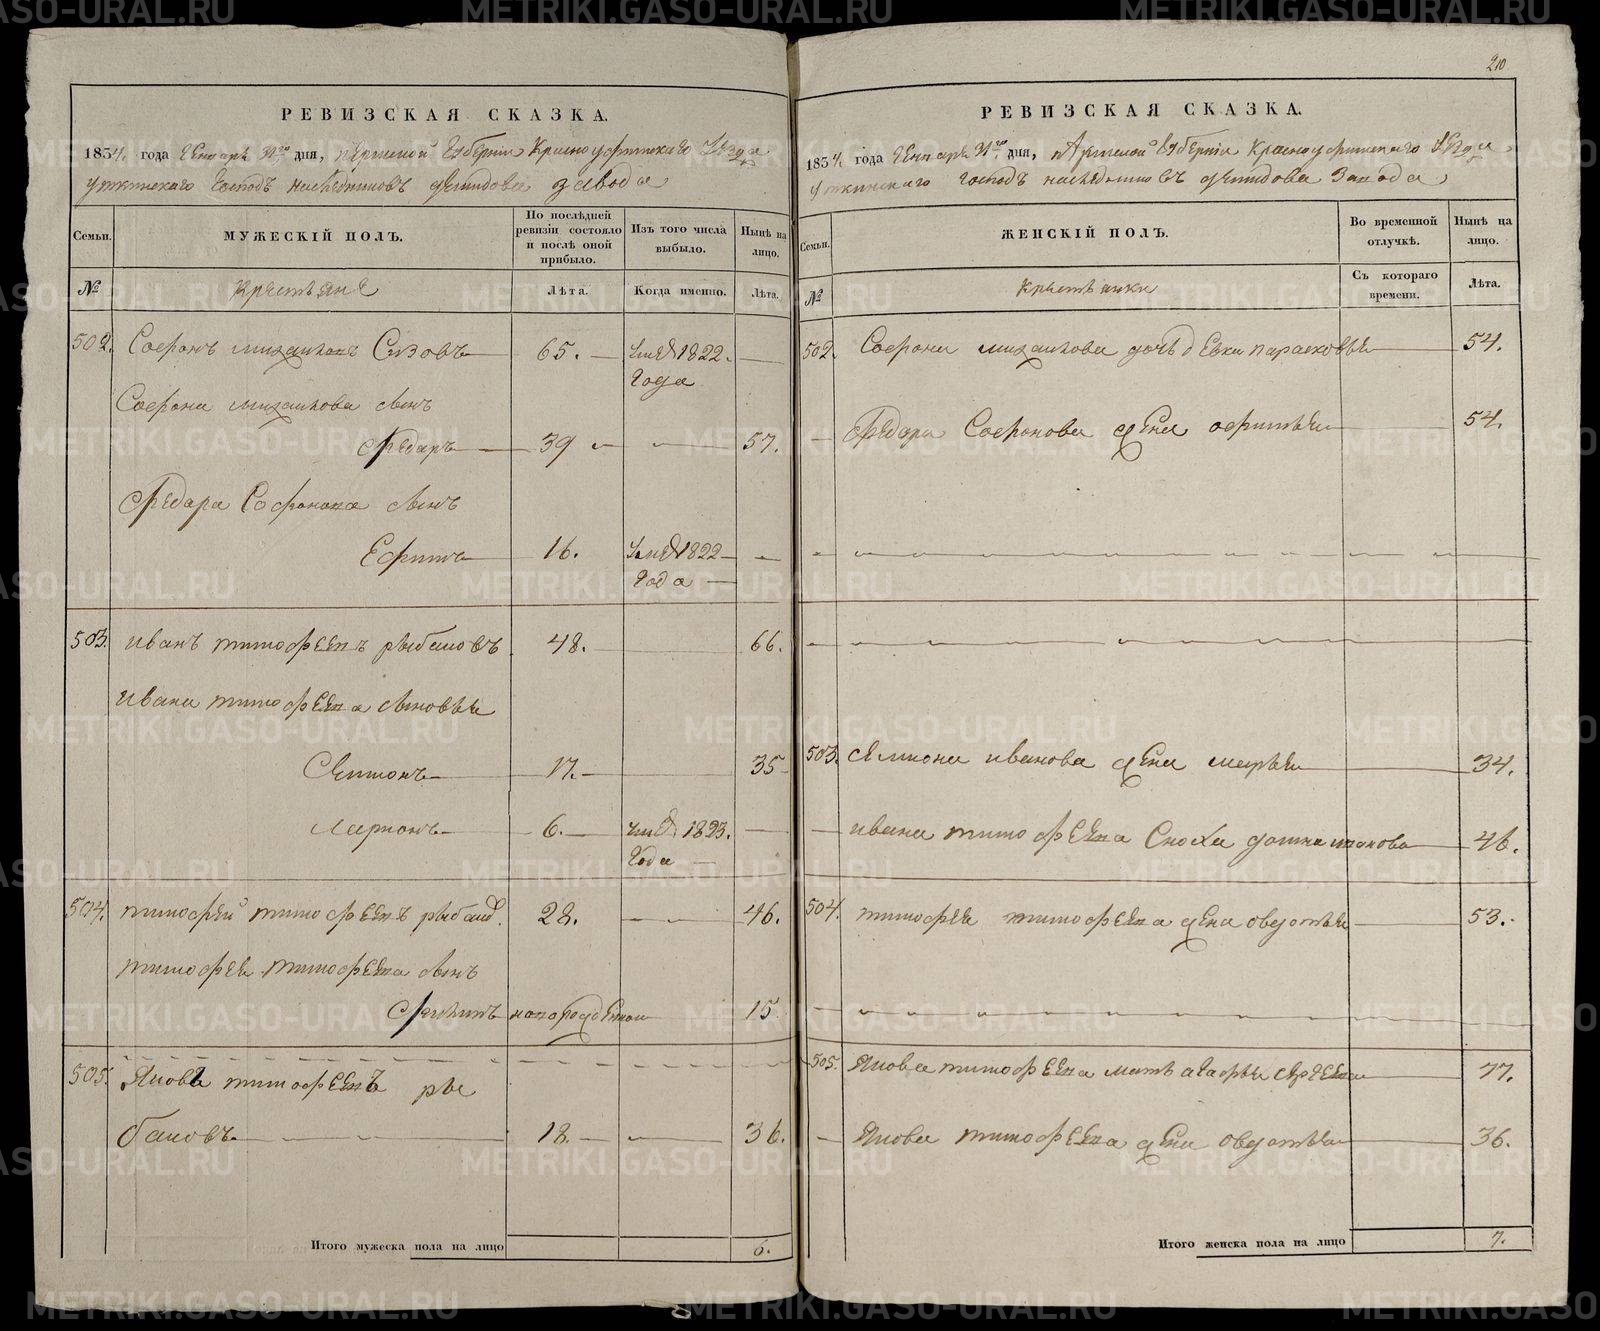 РЕВИЗСКАЯ СКАЗКА.
1834. года Генваря 31го дня, Пермской Губернiи Красноуфимскаго Уезда
Уткинскаго Господъ наследниковъ Демидова завода
Семьи.
МУЖЕСКIЙ ПОЛЪ.
По послѣдней ревизiи состояло и послѣ оной прибыло.
Изъ того числа выбыло.
Нынѣ на лицо.
№
Крестьяне
Лѣта.
Когда именно.
Лѣта.
502. Софронъ Михайловъ Сизовъ 65. Умеръ 1822. Года
Софрона Михайлова сынъ
Федаръ 39 57.
Федара Софронова сынъ
Ефимъ 16. Умеръ 1822 Года
503. Иванъ Тимофеевъ Рыбаковъ 48. 66.
Ивана Тимофеева сыновья
Семионъ 17. 35
Ларионъ 6. Умеръ 1823. Года
504. Тимофей Тимофеевъ 28. 46.
Тимофея Тимофеева сынъ
Филипъ новорожденной 15
505. Яковъ Тимофеевъ Ры
баковъ 18. 36.
Итого мужеска пола на лицо 6.
210
РЕВИЗСКАЯ СКАЗКА.
1834 года Генваря 31го дня, Пермской Губернiи Красноуфимскаго Уезда
Уткинскаго Господъ наследниковъ Демидова Завода
Семьи.
ЖЕНСКIЙ ПОЛЪ.
Во временной отлучкѣ.
Нынѣ на лицо.
№
Крестьянки
Съ котораго времени.
Лѣта.
502. Софрона Михайлова дочь девка Парасковья 54.
Федара Софронова жена Офимья 54.
503. Семиона Иванова жена Марья 34.
Ивана Тимофеева Сноха Домна 46.
504. Тимофея Тимофеева жена Овдотья 53.
505. Якова Тимофеева мать Агафья Сергеева 77.
Якова Тимофеева жена Овдотья 36.
Итого женска пола на лицо 7.
METRIKI.GASO-URAL.RU